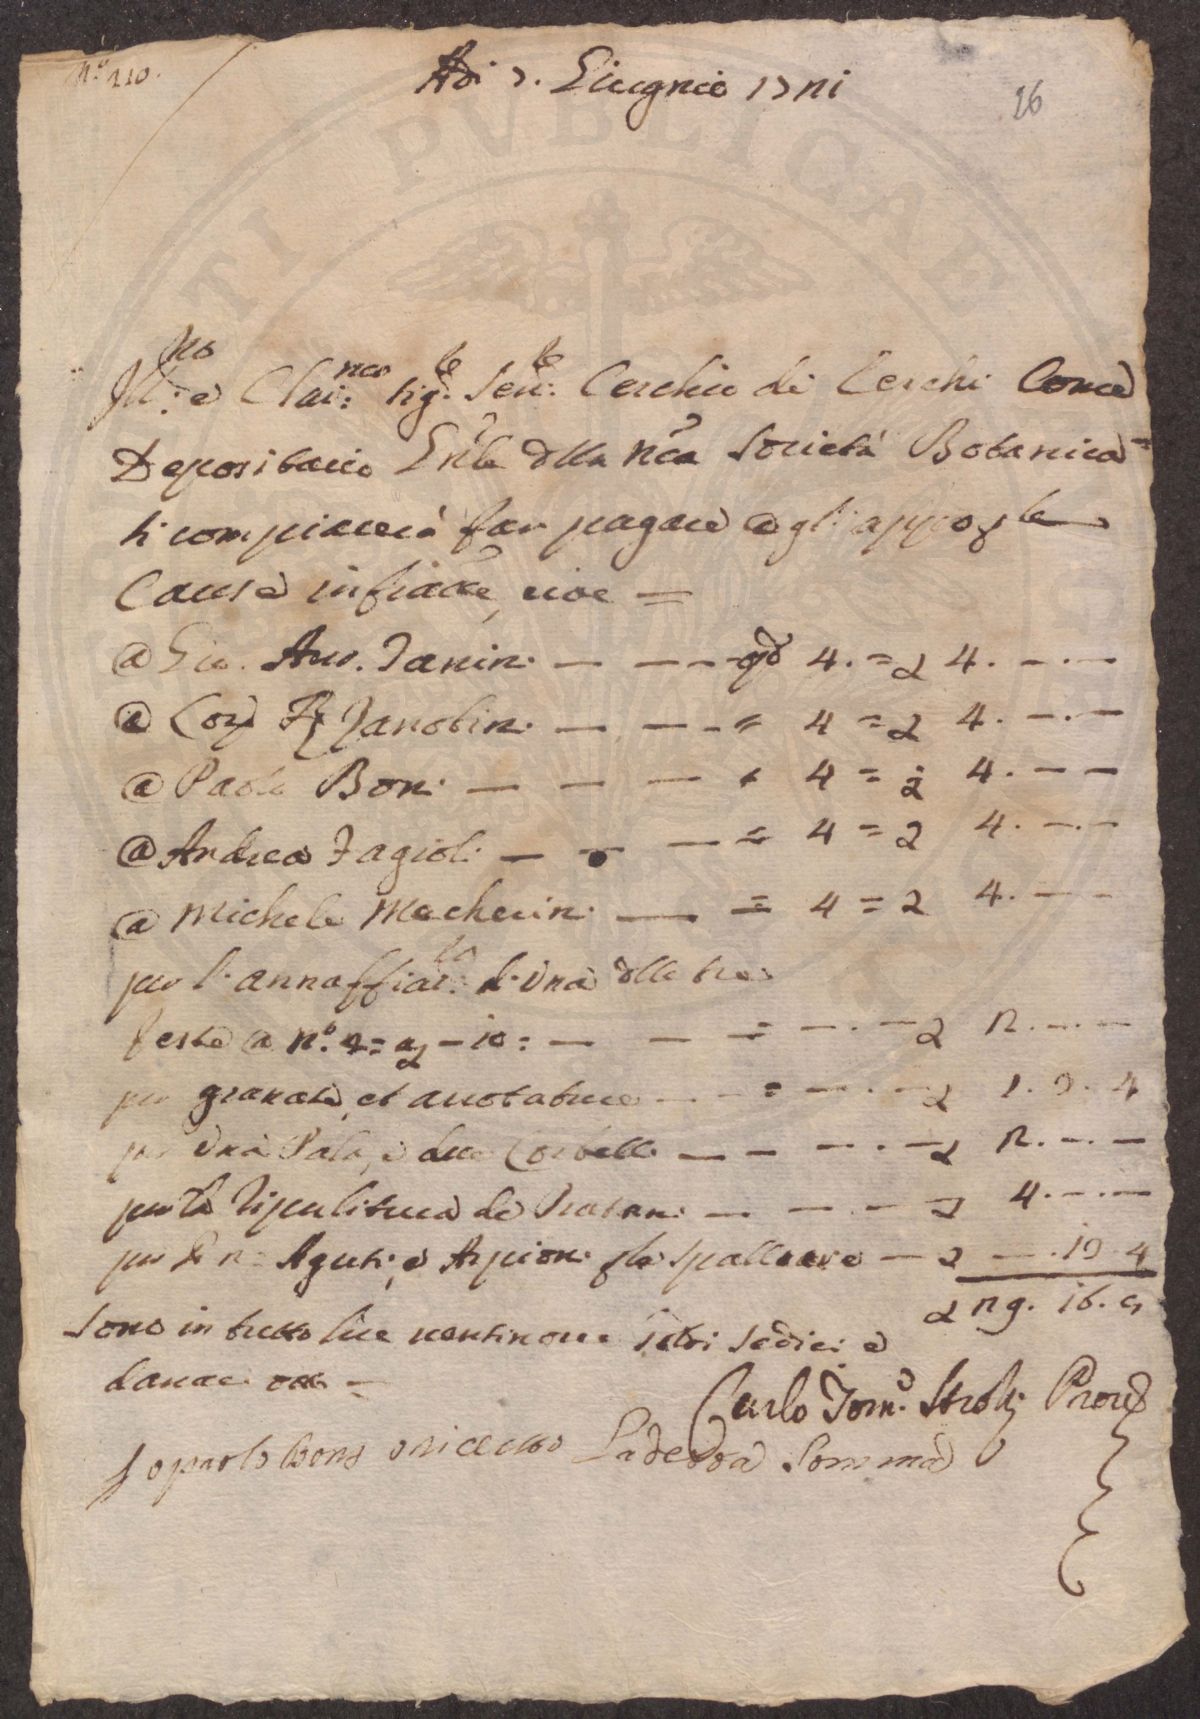 N.° 210.
Adi 7. Giugnio 1721
26
Ill:mo e Clari:mo Sig:re Sen:re Cerchio de Cerchi Come
Depositario Gnle della nra Società Botanica
si compiacerà far pagare agl' app
Cause infratte, cioè =
@ Gio. Anto. Nanin. — — — 4. = 2 4. — . —
@ Zanobin. — — — = 4 = 2 4. — . —
@ Paolo Boni — — — = 4 = 2 4. — —
@ Andrea Fagioli — — — = 4 = 2 4. — . —
@ Michele Mecherin. — = 4 = 2 4. — —
per l'annaffiat:ra d'una delle tre
feste a n.° — 10: — — = — . — 2 2. — . —
per granate, et — — = — . — 2 1. 3. 4
per una Pala, e due Corbelli — — — . — 2 2. — . —
per la Ripulitura de — — — 2 4. — . —
per Aguti, e Arpioni p la spalliera — 2 — . 13. 4
2 29. 16. 8
Sono in tutto lire ventinove soldi sedici e
danari otto =
Carlo Tom.o Prov.e
Io paolo boni o ricevuto la detta Somma